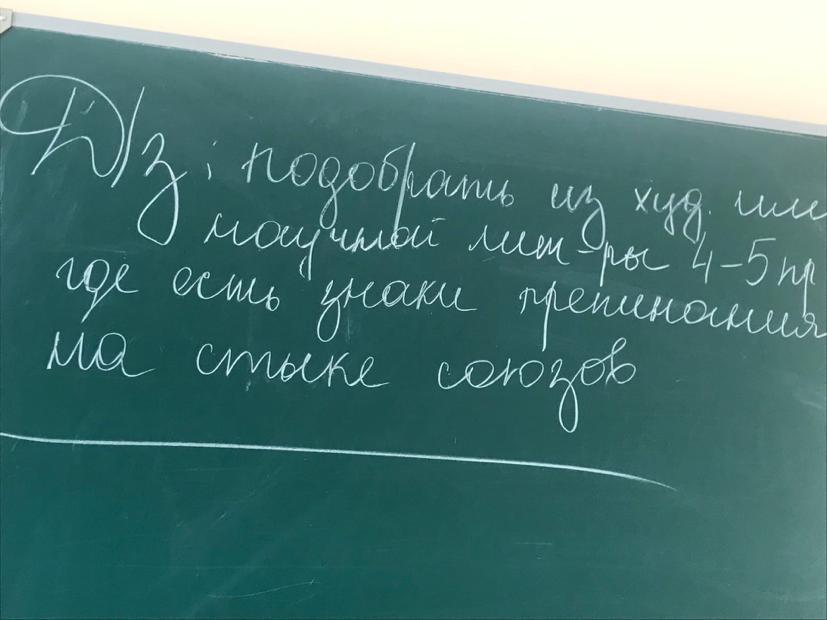 Д/з: подобрать из худ. или
научной лит-ры 4-5 пр
где есть знаки препинания
на стыке союзов